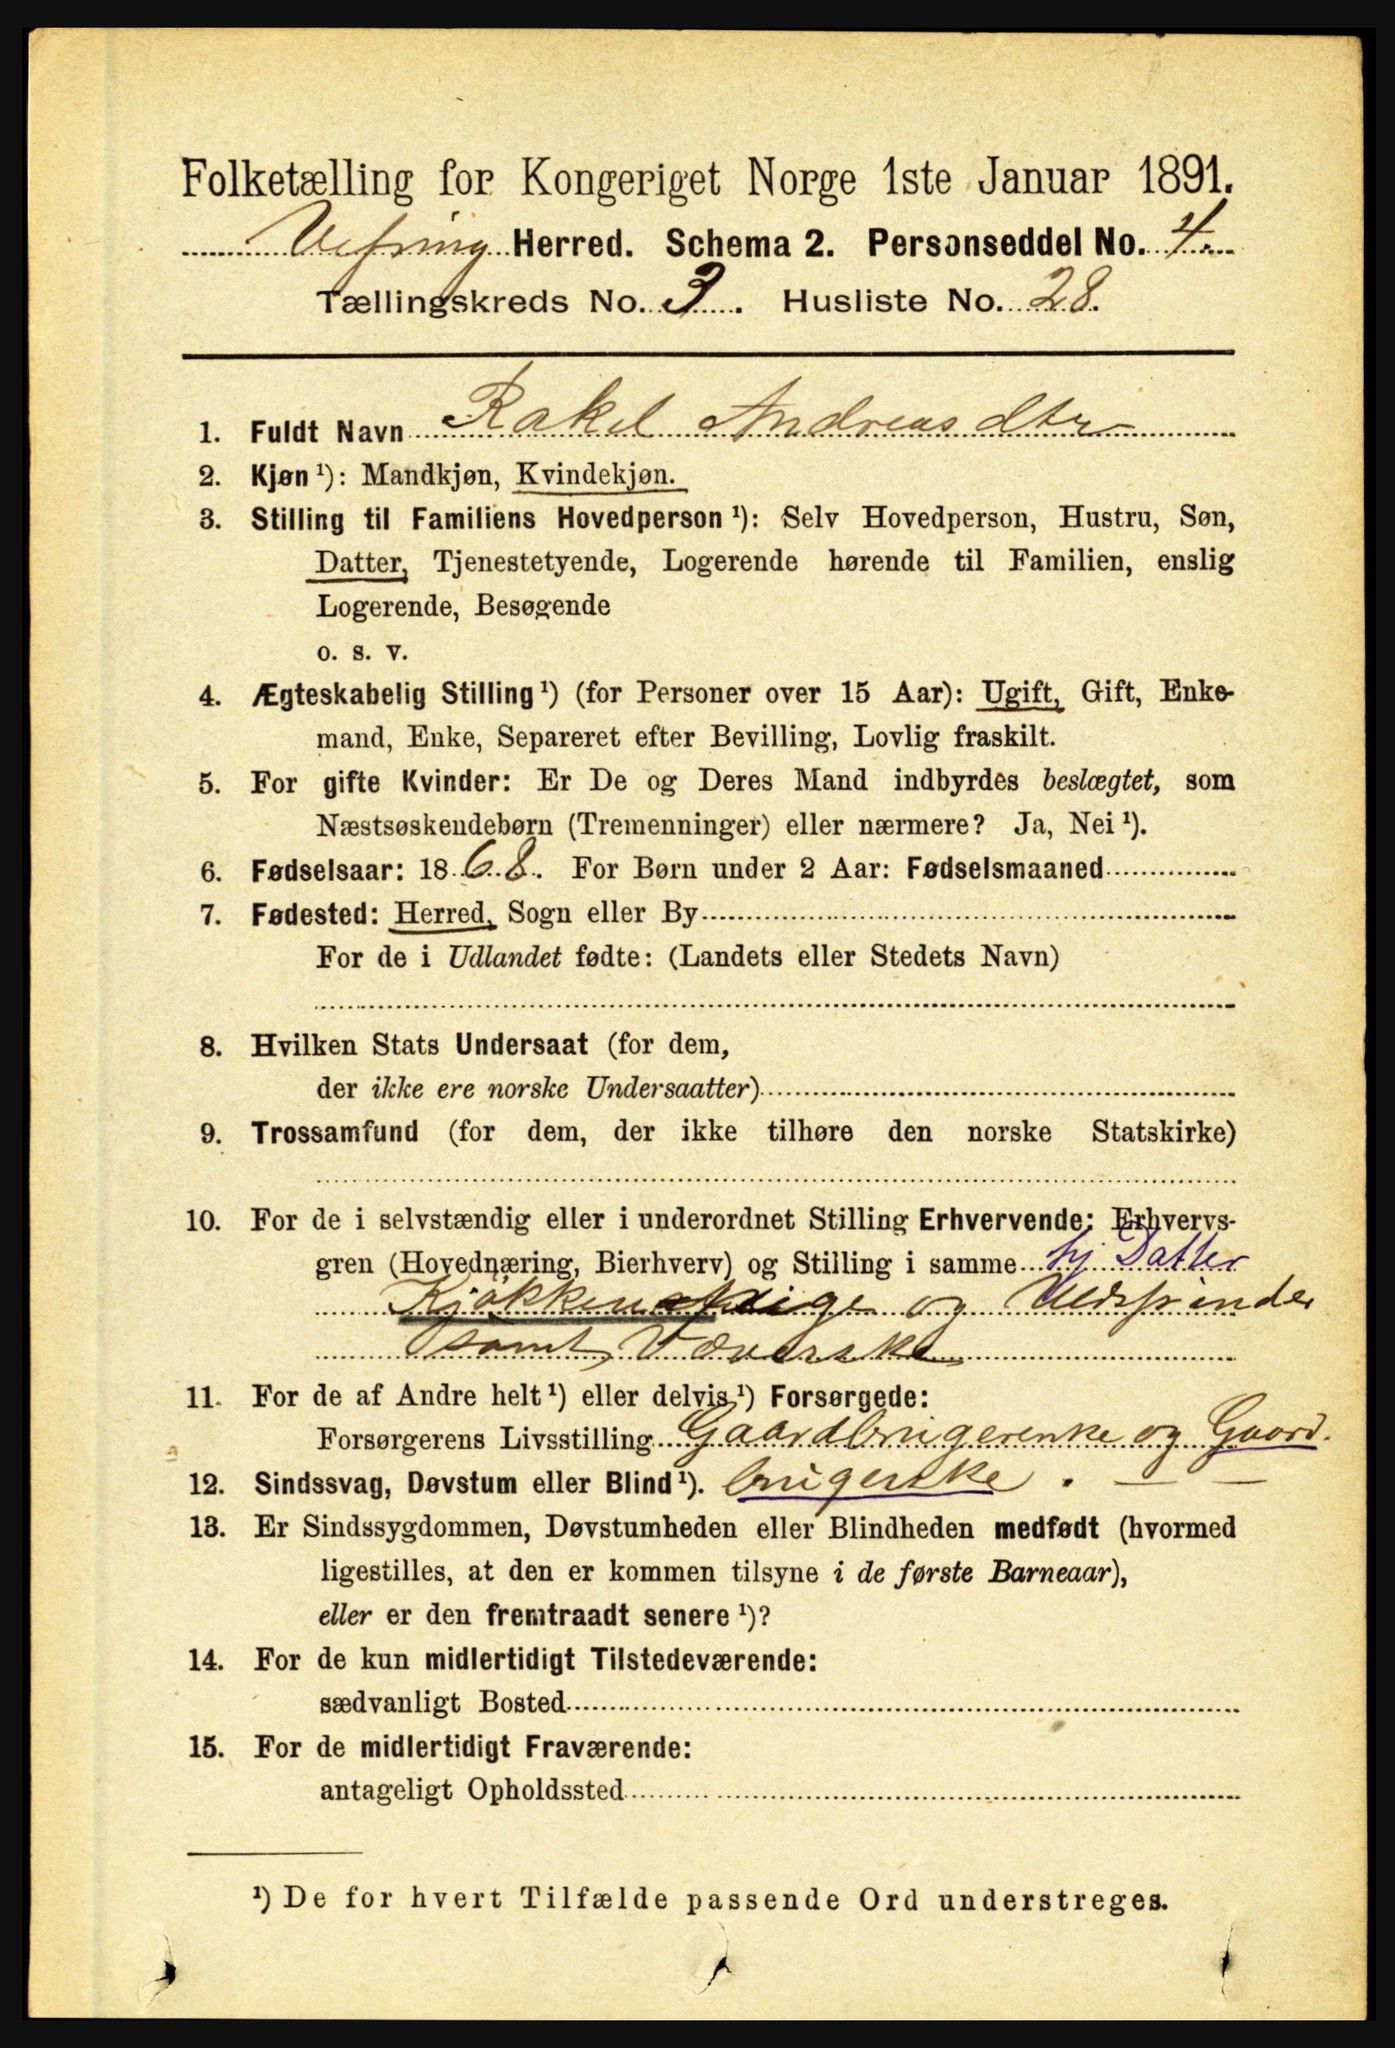 Folketælling for Kongeriget Norge 1ste Januar 1891.
Vefsning Herred. Schema 2. Personseddel No. 4.
Tællingskreds No. 3. Husliste No. 28.
1. Fuldt Navn Rakel Andreasdtr
2. Kjøn ¹): Mandkjøn, Kvindekjøn.
3. Stilling til Familiens Hovedperson ¹): Selv Hovedperson, Hustru, Søn,
Datter, Tjenestetyende, Logerende hørende til Familien, enslig
Logerende, Besøgende
o. s. v.
4. Ægteskabelig Stilling ¹) (for Personer over 15 Aar): Ugift, Gift, Enke-
mand, Enke, Separeret efter Bevilling, Lovlig fraskilt.
5. For gifte Kvinder: Er De og Deres Mand indbyrdes beslægtet, som
Næstsøskendebørn (Tremenninger) eller nærmere? Ja, Nei ¹).
6. Fødselsaar: 1868. For Børn under 2 Aar: Fødselsmaaned
7. Fødested: Herred, Sogn eller By
For de i Udlandet fødte: (Landets eller Stedets Navn)
8. Hvilken Stats Undersaat (for dem,
der ikke ere norske Undersaatter)
9. Trossamfund (for dem, der ikke tilhøre den norske Statskirke)
10. For de i selvstændig eller i underordnet Stilling Erhvervende: Erhvervs-
gren (Hovednæring, Bierhverv) og Stilling i samme hj Datter
Kjøkkenpige og Uldspinder
samt Væverske
11. For de af Andre helt ¹) eller delvis ¹) Forsørgede:
Forsørgerens Livsstilling Gaardbrugerenke og Gaard-
12. Sindssvag, Døvstum eller Blind ¹). brugerske. — —
13. Er Sindssygdommen, Døvstumheden eller Blindheden medfødt (hvormed
ligestilles, at den er kommen tilsyne i de første Barneaar),
eller er den fremtraadt senere ¹)?
14. For de kun midlertidigt Tilstedeværende:
sædvanligt Bosted
15. For de midlertidigt Fraværende:
antageligt Opholdssted
¹) De for hvert Tilfælde passende Ord understreges.